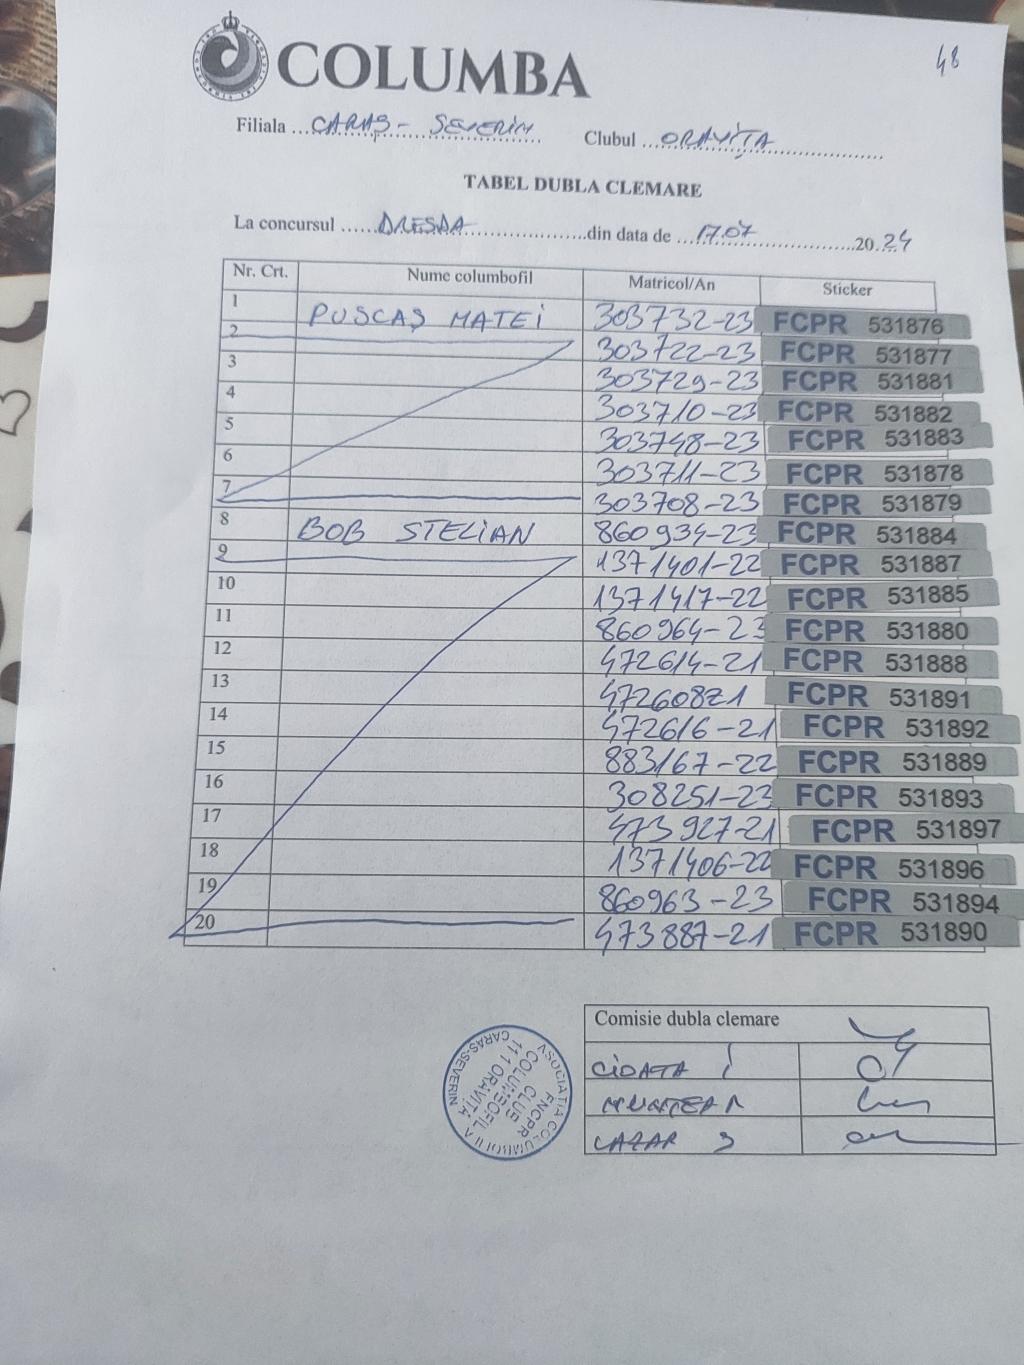 COLUMBA
48
Filiala ...CARAȘ - SEVERIN Clubul ...ORAVIȚA
TABEL DUBLA CLEMARE
La concursul ......DRESDA...........................din data de ...17.07.....................2024
Nr. Crt. Nume columbofil Matricol/An Sticker
1 PUSCAȘ MATEI 303732-23 FCPR 531876
2 303722-23 FCPR 531877
3 303729-23 FCPR 531881
4 303710-23 FCPR 531882
5 303748-23 FCPR 531883
6 303711-23 FCPR 531878
7 303708-23 FCPR 531879
8 BOB STELIAN 860934-23 FCPR 531884
9 1371401-22 FCPR 531887
10 1371417-22 FCPR 531885
11 860964-23 FCPR 531880
12 472614-21 FCPR 531888
13 47260821 FCPR 531891
14 472616-21 FCPR 531892
15 883167-22 FCPR 531889
16 308251-23 FCPR 531893
17 473927-21 FCPR 531897
18 1371406-22 FCPR 531896
19 860963-23 FCPR 531894
20 473887-21 FCPR 531890
Comisie dubla clemare
CIOATA I
MUNTEAN
LAZAR S
ASOCIATIA COLUMBOFILA
CARAS-SEVERIN
FNCPR
CLUB
COLUMBOFIL
111 ORAVIȚA